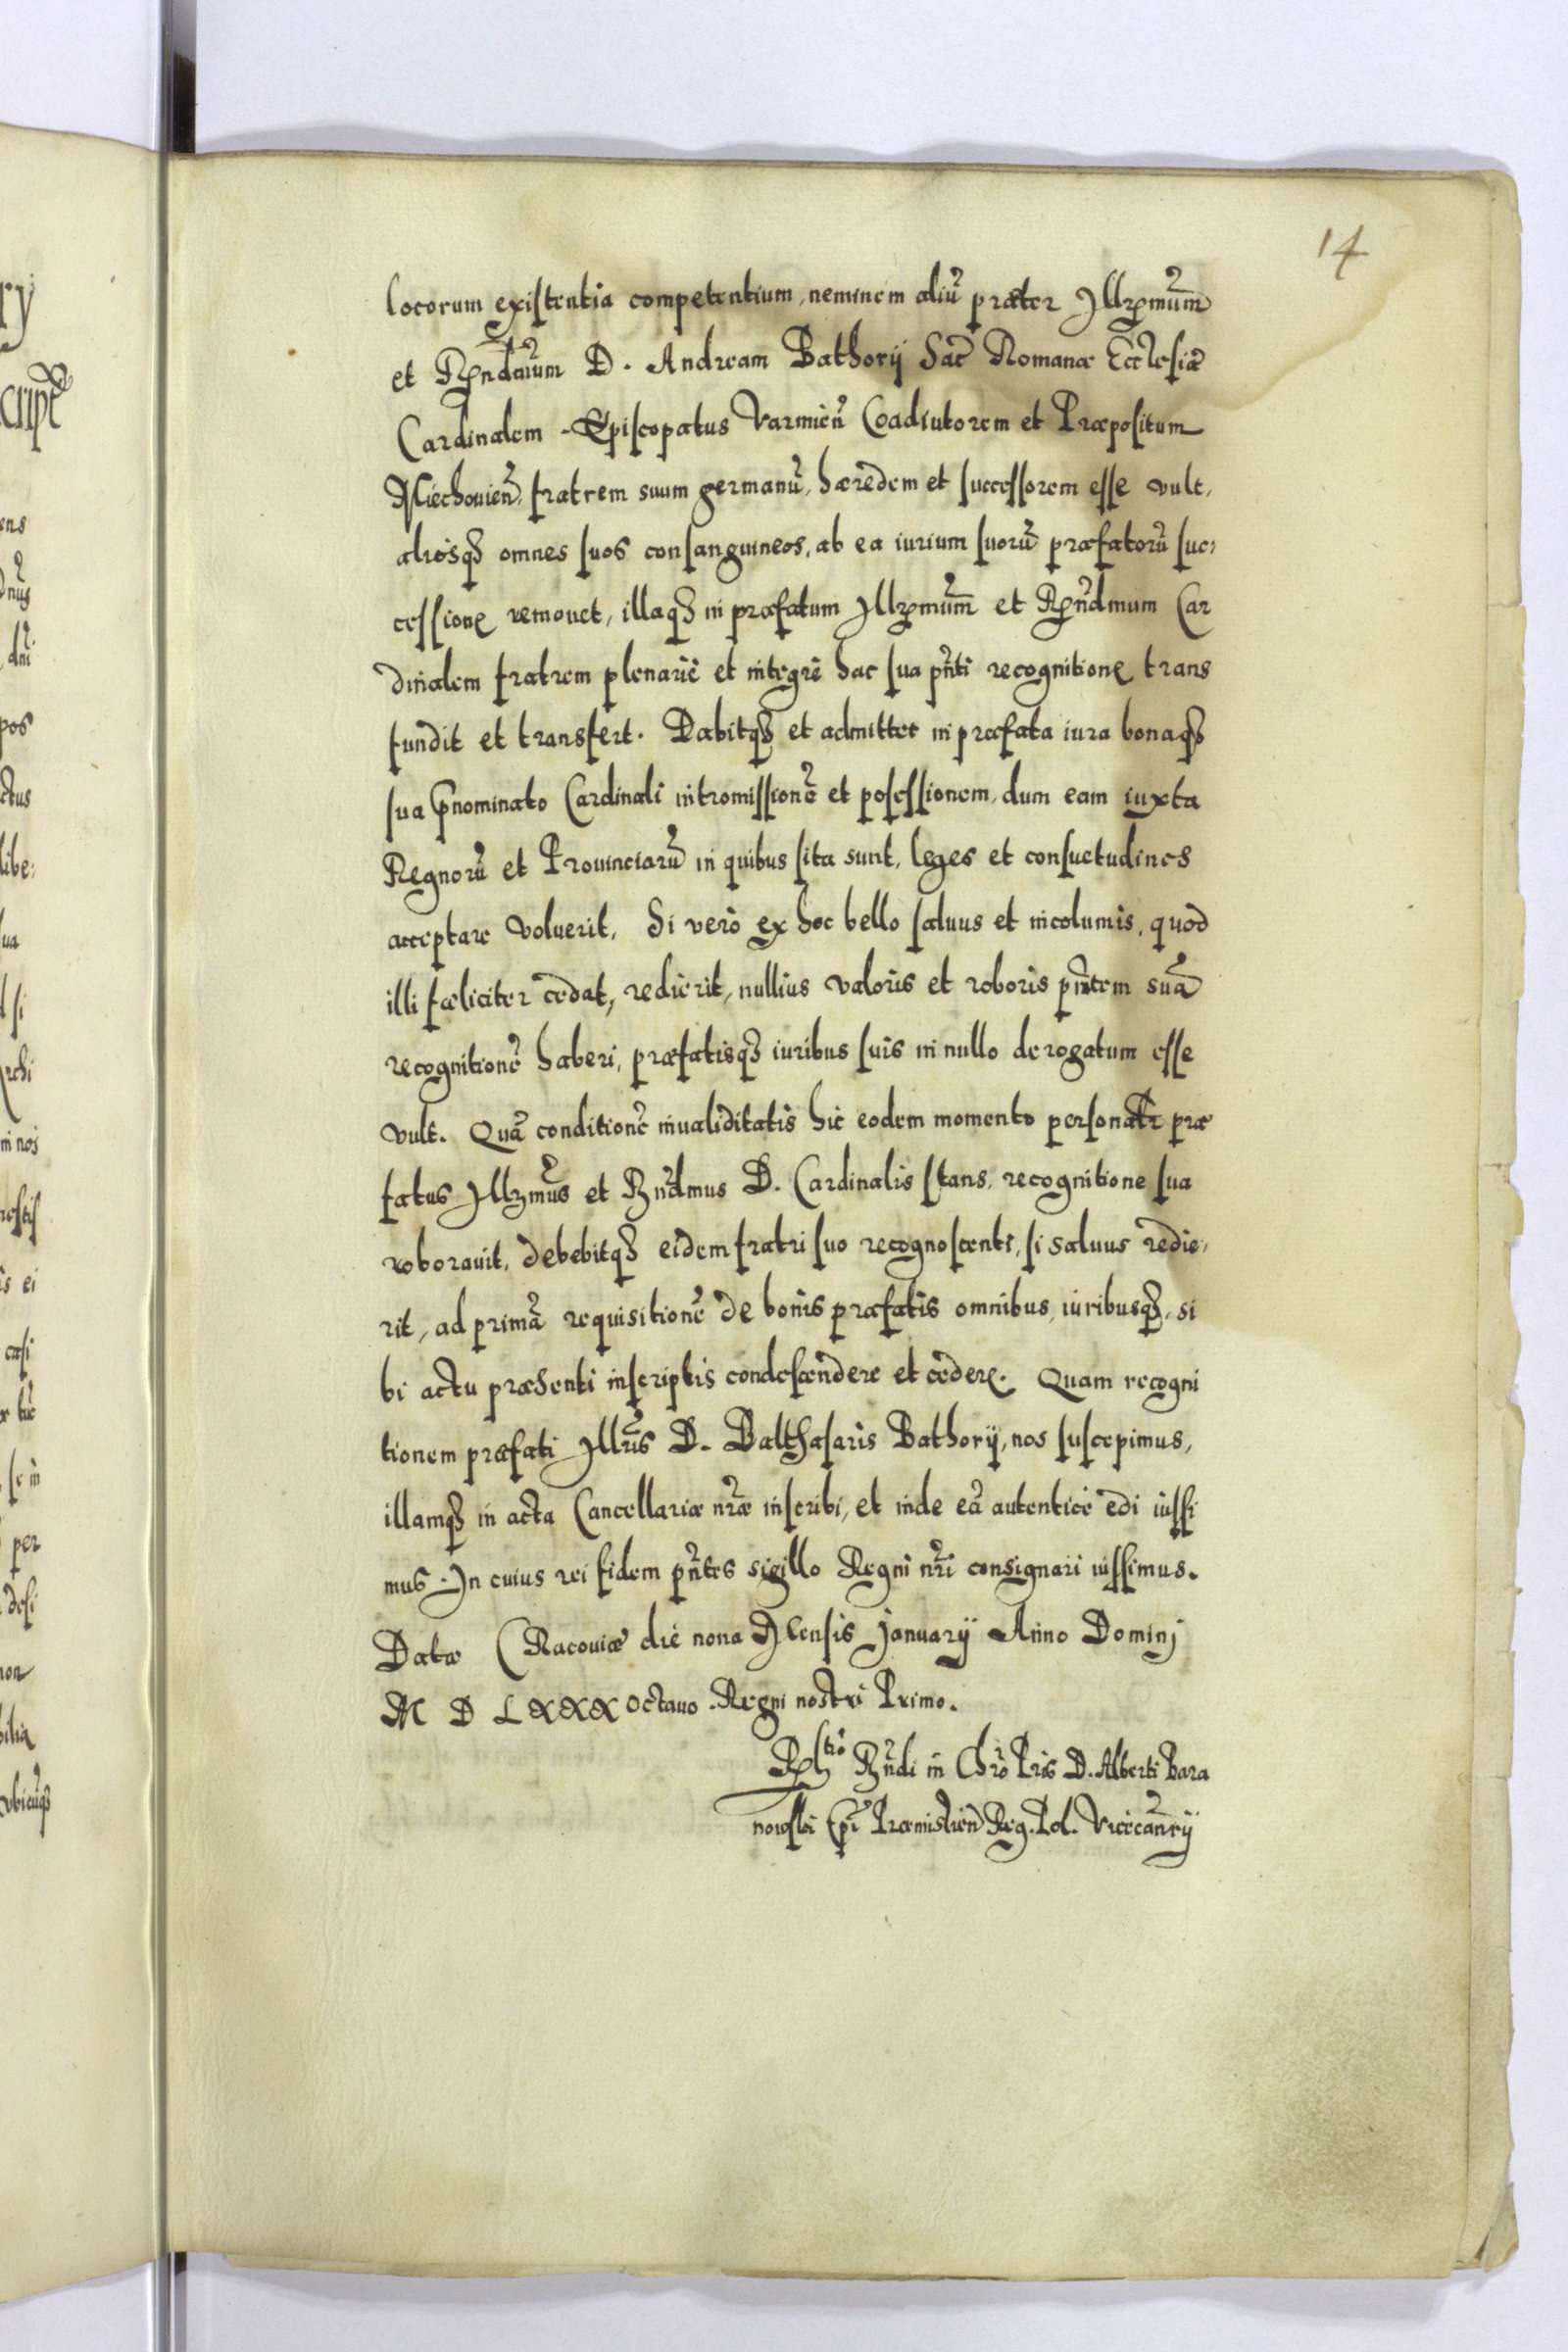 14
locorum existentia competentium, neminem aliũ præter Illr̃mum
et Rñdmum D. Andream Bathorÿ Sac̃ Romanæ Ecclesiæ
Cardinalem Episcopatus Varmien̄ Coadiutorem et Præpositum
Miechouien̄, fratrem suum germanũ, hæredem et successorem esse vult,
aliosq̃ omnes suos consanguineos, ab ea iurium suorũ præfatorũ suc:
cessione remouet, illaq̃ in præfatum Illr̃mum et Rñdmum Car
dinalem fratrem plenariè et integrè hac sua pñti recognitione trans
fundit et transfert. Dabitq̃ et admittet in præfata iura bonaq̃
sua pnominato Cardinali intromissionẽ et posessionem, dum eam iuxta
Regnorũ et Prouinciarũ in quibus sita sunt, leges et consuetudines
acceptare voluerit, Si verò ex hoc bello saluus et incolumis, quod
illi fæliciter cedat, redierit, nullius valoris et roboris pñtem suã
recognitionẽ haberi, præfatisq̃ iuribus suis in nullo derogatum esse
vult. Quã conditionẽ inualiditatis hic eodem momento personatr præ
fatus Illr̃mus et Rñdmus D. Cardinalis stans, recognitione sua
roborauit, debebitq̃ eidem fratri suo recognoscenti, si saluus redie,
rit, ad primã requisitionẽ de bonis præfatis omnibus, iuribusq̃, si
bi actu præsenti inscriptis condescendere et cedere. Quam recogni
tionem præfati Illr̃is D. Balthasaris Bathorÿ, nos suscepimus,
illamq̃ in acta Cancellariæ nr̃æ inscribi, et inde eã autenticè edi iussi
mus. In cuius rei fidem pñtes sigillo Regni nr̃i consignari iussimus.
Datæ Cracouiæ die nona Mensis Januarÿ Anno Dominj
M D LXXX Octauo. Regni nostri Primo.
Rñdi in Chr̃o Pr̃is D. Alberti Bara
nowski Ep̃i Præmislien̄ Reg. Pol. Vicecan̄rÿ